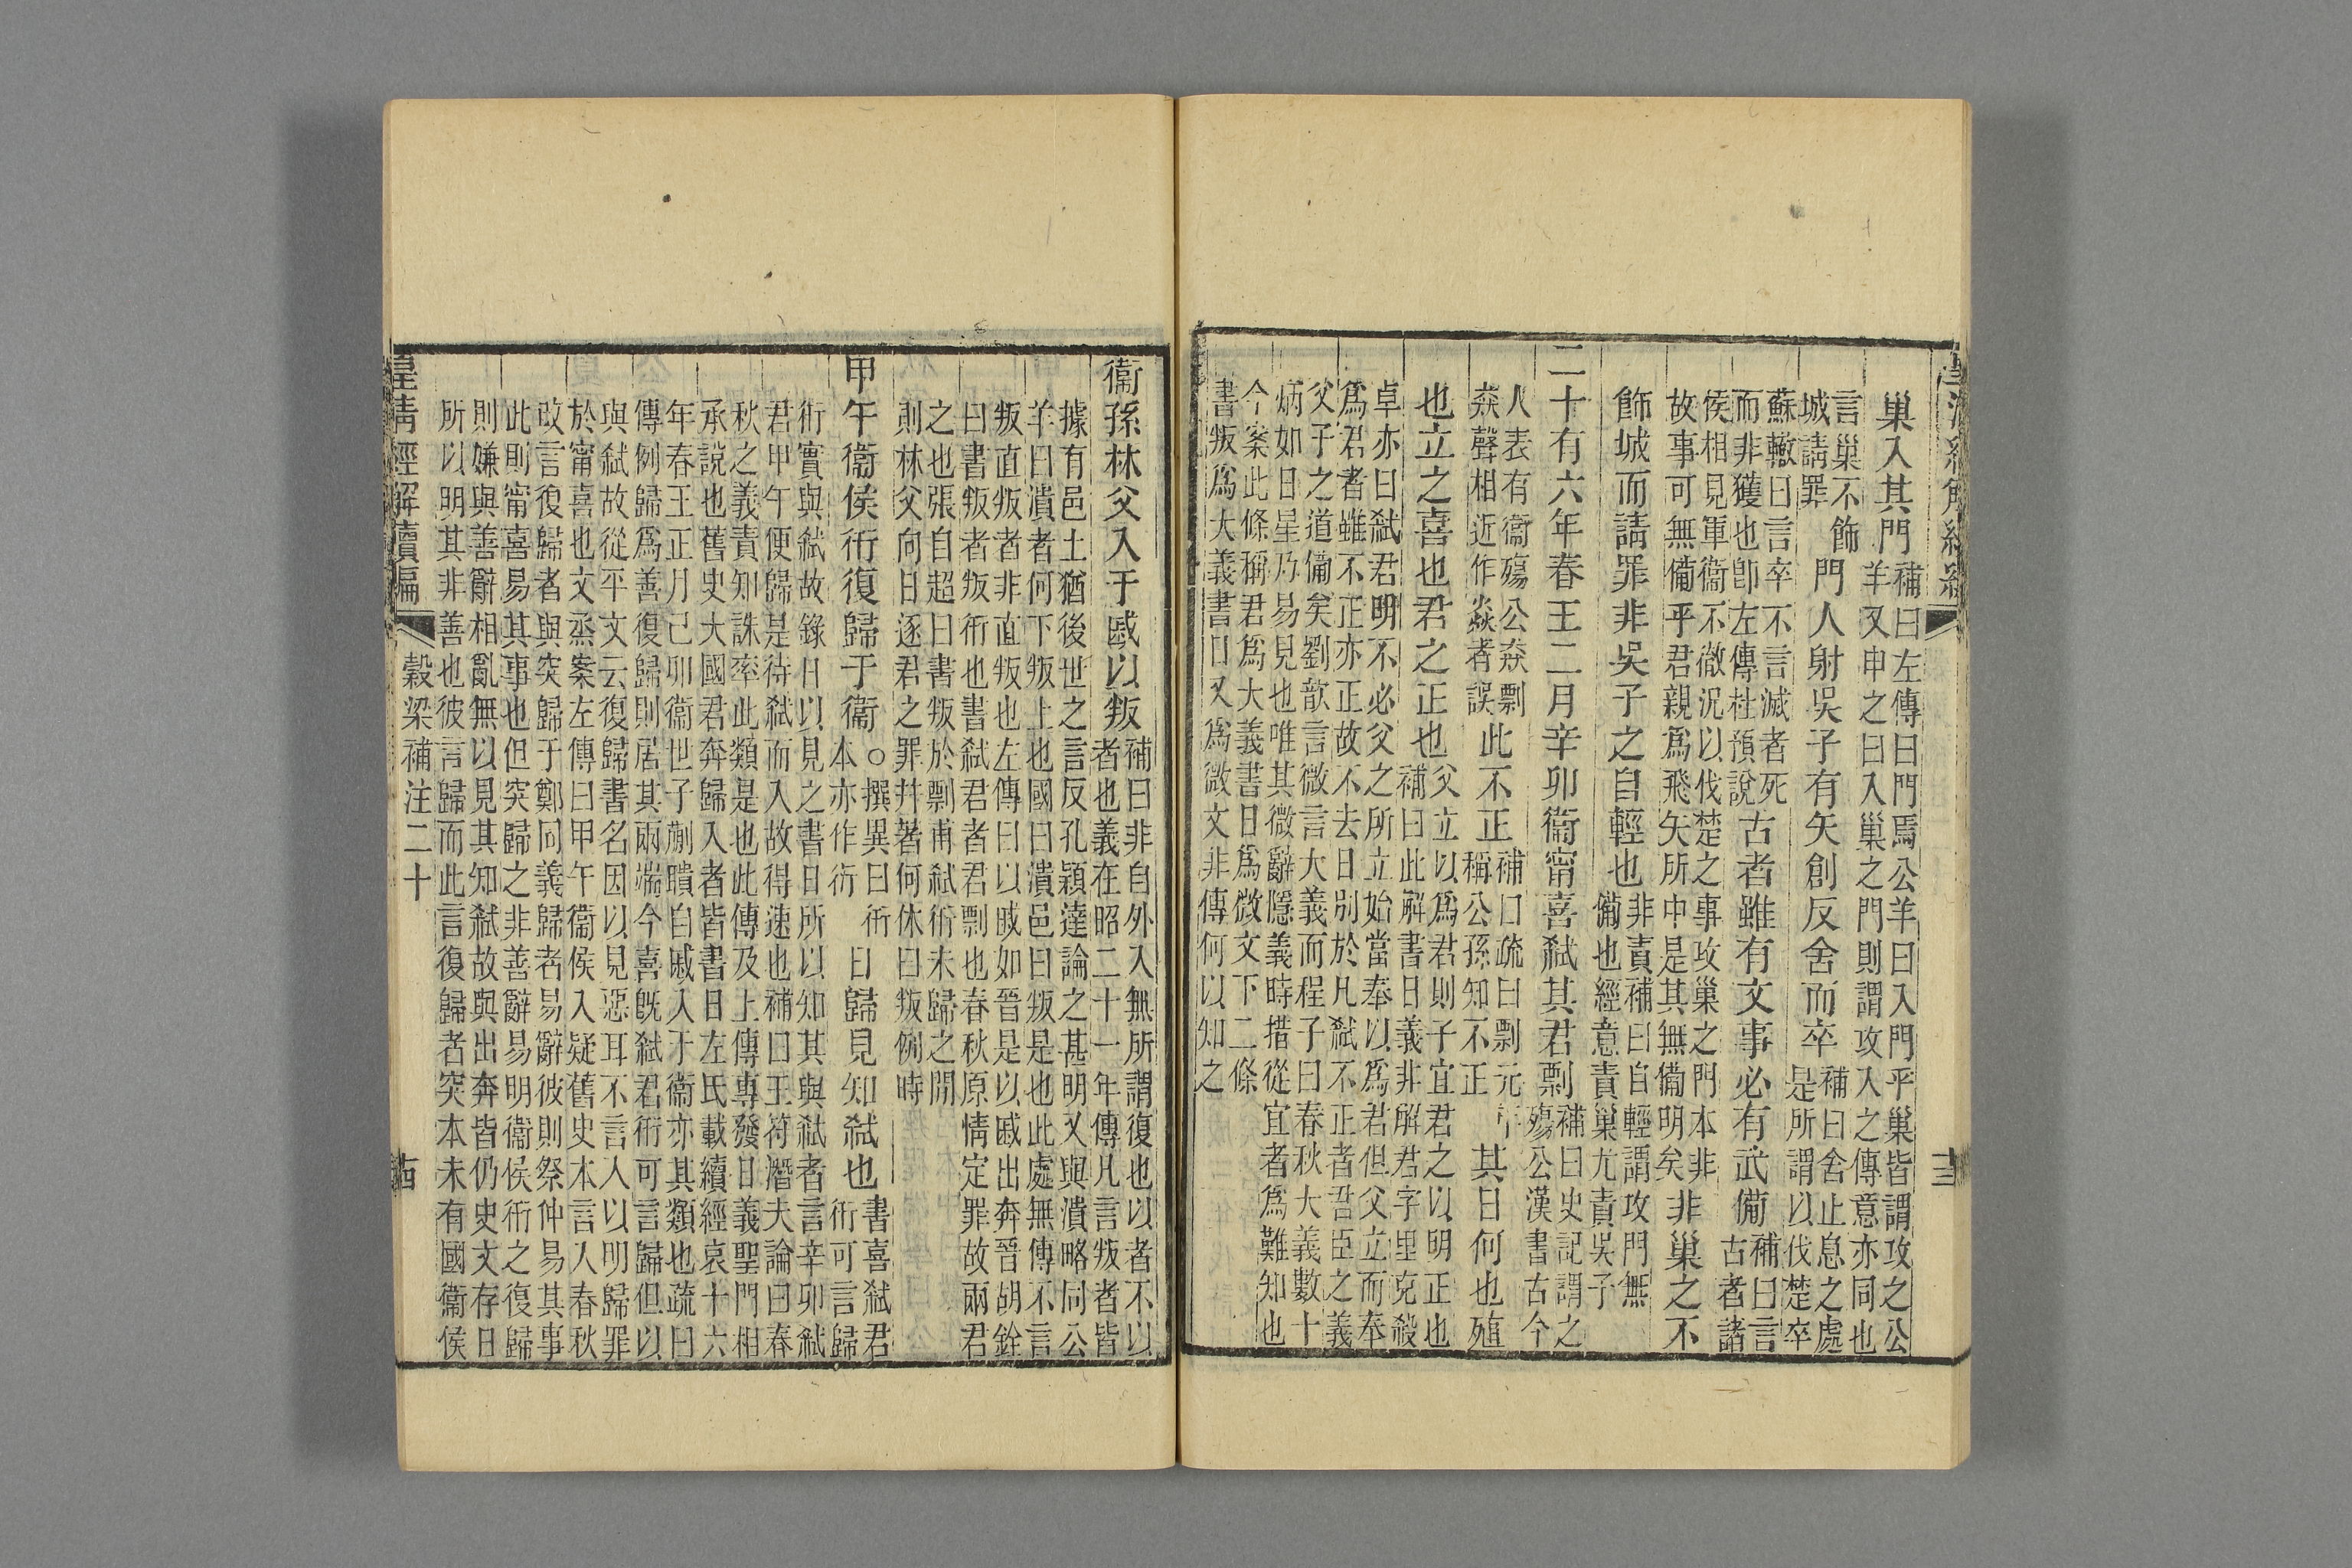 巢入其門補曰左傳曰門焉公羊曰入門乎巢皆謂攻之公
羊又申之曰入巢之門則謂攻入之傳意亦同也
言巢不飾
城請罪飾門人射吳子有矢創反舍而卒補曰舍止息之處
是所謂以伐楚卒
蘇轍曰言卒不言滅者死
而非獲也卽左傳杜預說古者雖有文事必有武備補曰言
古者諸
侯相見軍衞不徹況以伐楚之事攻巢之門本非
故事可無備乎君親爲飛矢所中是其無備明矣非巢之不
飾城而請罪非吳子之自輕也非責補曰自輕謂攻門無
備也經意責巢尤責吳子
二十有六年春王二月辛卯衞甯喜弒其君剽補曰史記謂之
殤公漢書古今
人表有衞殤公焱剽
猋聲相近作焱者誤此不正補曰疏曰剽元年
稱公孫知不正其日何也殖
也立之喜也君之正也父立以爲君則子宜君之以明正也
補曰此解書日義非解君字里克殺
卓亦曰弒君明不必父之所立始當奉以爲君但父立而奉
爲君者雖不正亦正故不去日別於凡弒不正者君臣之義
父子之道備矣劉歆言微言大義而程子曰春秋大義數十
炳如日星乃易見也唯其微辭隱義時措從宜者爲難知也
今案此條稱君爲大義書日爲微文下二條
書叛爲大義書日又爲微文非傳何以知之
十三
衞孫林父入于戚以叛補曰非自外入無所謂復也以者不以
者也義在昭二十一年傳凡言叛者皆
據有邑土猶後世之言反孔穎達論之甚明又與潰略同公
羊曰潰者何下叛上也國曰潰邑曰叛是也此處無傳不言
叛直叛者非直叛也左傳曰以戚如晉是以戚出奔晉胡銓
曰書叛者叛衎也書弒君者君剽也春秋原情定罪故兩君
之也張自超曰書叛於剽甫弒衎未歸之閒
則林父向日逐君之罪幷著何休曰叛例時
甲午衞侯衎復歸于衞○撰異曰衎
本亦作衎日歸見知弒也書喜弒君
衎可言歸
衎實與弒故錄日以見之書日所以知其與弒者言辛卯弒
君甲午便歸是待弒而入故得速也補曰王符潛夫論曰春
秋之義責知誅率此類是也此傳及上傳專發日義聖門相
承說也舊史大國君奔歸入者皆書日左氏載續經哀十六
年春王正月己卯衞世子蒯聵自戚入于衞亦其類也疏曰
傳例歸爲善復歸則居其兩端今喜旣弒君衎可言歸但以
與弒故從平文云復歸書名因以見惡耳不言入以明歸罪
於甯喜也文烝案左傳曰甲午衞侯入疑舊史本言入春秋
改言復歸者與突歸于鄭同義歸者易辭彼則祭仲易其事
此則甯喜易其事也但突歸之非善辭易明衞侯衎之復歸
則嫌與善辭相亂無以見其知弒故與出奔皆仍史文存日
所以明其非善也彼言歸而此言復歸者突本未有國衞侯
皇淸經解續編 穀梁補注二十 十四